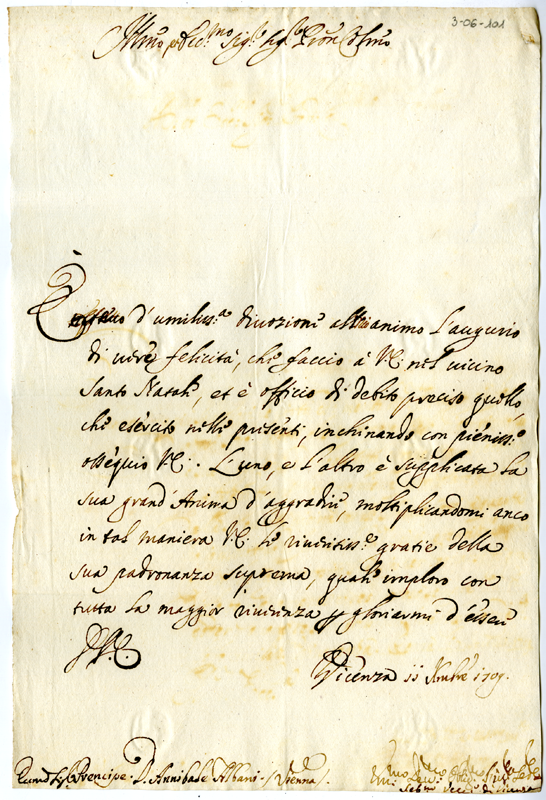 3-06-101
Illmo e Rev.mo Sig.r Sig.r Pron Colmo
È effetto d'umiliss.a divozione all'animo l'augurio
di vere felicità, che faccio à V.E. nel vicino
Santo Natale, et è officio di debito preciso quello,
che esercito nelle presenti, inchinando con pieniss.o
ossequio V.E. L'uno, e l'altro è supplicata la
sua grand'Anima d'aggradire, moltiplicandomi anco
in tal maniera V.E. le riveritiss.e gratie della
sua padronanza suprema, quale imploro con
tutta la maggior riverenza p gloriarmi d'essere
D.V.E.
Vicenza 11 Xmbre 1709.
Sig.r Prencipe D. Annibale Albani / Vienna /